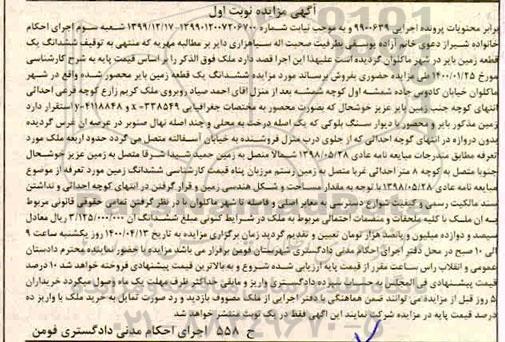 آگهی مزایده نوبت اول
برابر محتویات پرونده اجرایی ۹۹۰۰۶۳۹ و به موجب نیابت شماره ۱۳۹۹۰۱۲۰۰۷۲۰۶۷۰۰-۱۳۹۹/۱۲/۱۷ شعبه سوم اجرای احکام
خانواده شیراز دعوی خانم آزاده یوسفی بطرفیت صحبت اله سیاهزاری دایر بر مطالبه مهریه که منتهی به توقیف ششدانگ یک
قطعه زمین بایر در شهر ماکلوان گردیده است علیهذا این اجرا قصد دارد ملک فوق الذکر را بر اساس قیمت پایه به شرح کارشناسی
مورخ ۱۴۰۰/۰۱/۲۵ طی مزایده حضوری بفروش برساند مورد مزایده ششدانگ یک قطعه زمین بایر محصور شده واقع در شهر
ماکلوان خیابان کادوس جاده شمشه اول کوچه شمشه بعد از منزل آقای احمد صیاد روبروی ملک کریم زارع کوچه فرعی احداثی
انتهای کوچه جنب زمین بایر عزیز خوشحال که بصورت محصور به مختصات جغرافیایی x-۳۳۸۵۴۹ و y-۴۱۱۸۸۴۸ استقرار دارد
زمین مذکور بایر و محصور با دیوار سنگ بلوکی که یک اصله درخت به محلی و چند اصله نهال صنوبر در عرصه آن غرس گردیده
بدون دروازه در انتهای کوچه احداثی که از جلوی درب منزل فروشنده به خیابان آسفالته متصل می گردد حدود اربعه ملک مورد
تعرفه مطابق مندرجات مبایعه نامه عادی ۱۳۹۸/۰۵/۲۸ شمالا متصل به زمین حمید شیدا شرقا متصل به زمین عزیز خوشحال
جنوبا متصل به کوچه ۸ متر احداثی غربا متصل به زمین رستم مرزبان پناه قیمت کارشناسی ششدانگ زمین مورد تعرفه از موضوع
مبایعه نامه عادی ۱۳۹۸/۰۵/۲۸ با توجه به مقدار مساحت و شکل هندسی زمین و قرار گرفتن در انتهای کوچه احداثی و نداشتن
سند مالکیت رسمی و کیفیت شوارع دسترسی به معابر اصلی و فاصله تا شهر ماکلوان با در نظر گرفتن تمامی حقوق قانونی مربوط
به آن ملک با کلیه ملحقات و منضمات احتمالی مربوط به ملک در شرایط کنونی مبلغ ششدانگ آن ۳/۱۲۵/۰۰۰/۰۰۰ ریال معادل
سیصد و دوازده میلیون و پانصد هزار تومان تعیین و تقدیم گردید زمان برگزاری مزایده به تاریخ ۱۴۰۰/۰۴/۱۳ روز یکشنبه ساعت ۹
الی ۱۰ صبح در محل دفتر اجرای احکام مدنی دادگستری شهرستان فومن برقرار می باشد مزایده با حضور نماینده محترم دادستان
عمومی و انقلاب راس ساعت مقرر از قیمت پایه ارزیابی شده شروع و به بالاترین قیمت پیشنهادی فروخته خواهد شد ۱۰ درصد
قیمت پیشنهادی فی المجلس به حساب سپرده دادگستری واریز و مابقی حداکثر ظرف مهلت یک ماه وصول میگردد خریداران
۵ روز قبل از مزایده می توانند ضمن هماهنگی با دفتر اجرایی از ملک مصوف بازدید و رد صورت تمایل به خرید ملک با واریز ده
درصد قیمت پایه در مزایده شرکت نمایند این آگهی فقط در یک نوبت منتشر خواهد شد
ح ۵۵۸ اجرای احکام مدنی دادگستری فومن